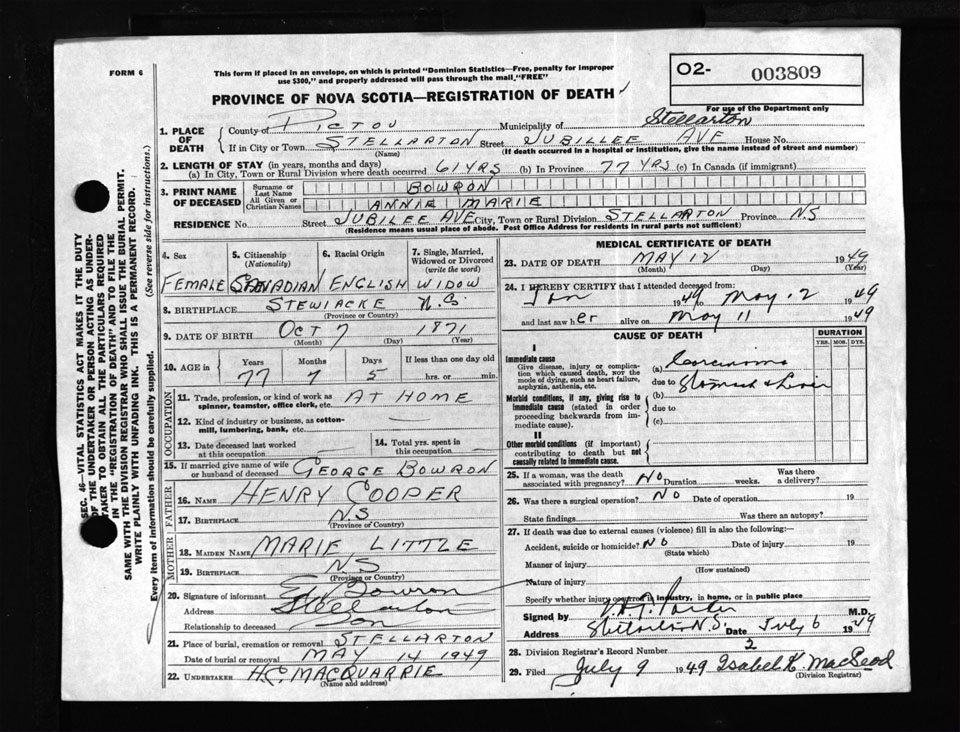 FORM 6
This form if placed in an envelope, on which is printed "Dominion Statistics—Free, penalty for improper
use $300," and properly addressed will pass through the mail "FREE"
PROVINCE OF NOVA SCOTIA—REGISTRATION OF DEATH
O2- 003809
For use of the Department only
1. PLACE OF DEATH
County of PICTOU Municipality of Stellarton
If in City or Town STELLARTON Street JUBILLEE AVE House No.
(Name) (If death occurred in a hospital or institution, give the name instead of street and number)
2. LENGTH OF STAY (in years, months and days)
(a) In City, Town or Rural Division where death occurred 61 YRS (b) In Province 77 YRS (c) In Canada (if immigrant)
3. PRINT NAME OF DECEASED
Surname or Last Name BOWRON
All Given or Christian Names ANNIE MARIE
RESIDENCE No. Street JUBILEE AVE City, Town or Rural Division STELLARTON Province N.S
(Residence means usual place of abode. Post Office Address for residents in rural parts not sufficient)
4. Sex 5. Citizenship (Nationality) 6. Racial Origin 7. Single, Married, Widowed or Divorced (write the word)
FEMALE CANADIAN ENGLISH WIDOW
8. BIRTHPLACE STEWIACKE
(Province or Country)
9. DATE OF BIRTH OCT 7 1871
(Month) (Day) (Year)
10. AGE in Years Months Days If less than one day old
77 7 5 hrs. or min.
OCCUPATION
11. Trade, profession or kind of work as spinner, teamster, office clerk, etc. AT HOME
12. Kind of industry or business, as cotton-mill, lumbering, bank, etc.
13. Date deceased last worked at this occupation 14. Total yrs. spent in this occupation
15. If married give name of wife or husband of deceased GEORGE BOWRON
FATHER
16. NAME HENRY COOPER
17. BIRTHPLACE N.S
(Province or Country)
MOTHER
18. MAIDEN NAME MARIE LITTLE
19. BIRTHPLACE NS
(Province or Country)
20. Signature of informant Bowron
Address Stellarton
Relationship to deceased Son
21. Place of burial, cremation or removal STELLARTON
Date of burial or removal MAY 14 1949
22. UNDERTAKER H.C MACQUARRIE
(Name and address)
MEDICAL CERTIFICATE OF DEATH
23. DATE OF DEATH MAY 12 1949
(Month) (Day) (Year)
24. I HEREBY CERTIFY that I attended deceased from:
Jan 1949 to May 12 1949
and last saw her alive on May 11 1949
CAUSE OF DEATH DURATION
YRS. MOS. DYS.
I
Immediate cause
Give disease, injury or complication which caused death, NOT the mode of dying, such as heart failure, asphyxia, asthenia, etc.
(a) Carcinoma
due to Stomach & Liver
Morbid conditions, if any, giving rise to immediate cause (stated in order proceeding backwards from immediate cause).
(b)
due to
(c)
II
Other morbid conditions (if important) contributing to death but not causally related to immediate cause.
25. If a woman, was the death associated with pregnancy? NO Duration weeks. Was there a delivery?
26. Was there a surgical operation? NO Date of operation 19
State findings Was there an autopsy?
27. If death was due to external causes (violence) fill in also the following:—
Accident, suicide or homicide? NO Date of injury 19
(State which)
Manner of injury
(How sustained)
Nature of injury
Specify whether injury occurred in industry, in home, or in public place
Signed by Parker M.D.
Address Stellarton N.S. Date July 6 1949
28. Division Registrar's Record Number 2
29. Filed July 9 1949 Isabel K. MacLeod
(Division Registrar)
SEC. 46—VITAL STATISTICS ACT MAKES IT THE DUTY
OF THE UNDERTAKER OR PERSON ACTING AS UNDERTAKER
TO OBTAIN ALL THE PARTICULARS REQUIRED
IN THE "REGISTRATION OF DEATH" AND TO FILE THE
SAME WITH THE DIVISION REGISTRAR WHO SHALL ISSUE THE BURIAL PERMIT.
WRITE PLAINLY WITH UNFADING INK. THIS IS A PERMANENT RECORD.
Every item of information should be carefully supplied. (See reverse side for instructions.)